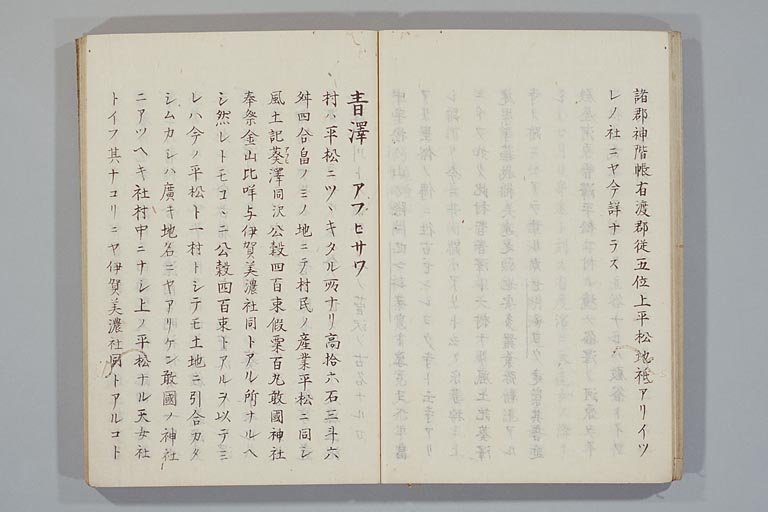 諸郡神階帳有渡郡従五位上平松地祗アリイツ
レノ社ニヤ今詳ナラス
青澤 アフヒサワ
村ハ平松ニツヽキタル所ナリ高拾六石三斗六
舛四合畠ノミノ地ニテ村民ノ産業平松ニ同シ
風土記葵澤同沢公穀四百束假粟百九敢國神社
奉祭金山比咩与伊賀美濃社同トアル所ナルヘ
シ然レトモコヽニ公穀四百束トアルヲ以テミ
レハ今ノ平松ト一村トシテモ土地ニ引合カタ
シムカシハ廣キ地名ニヤアリケン敢國ノ神社
ニアツヘキ社村中ニナシ上ノ平松ナル天女社
トイフ其ナコリニヤ伊賀美濃社同トアルコト